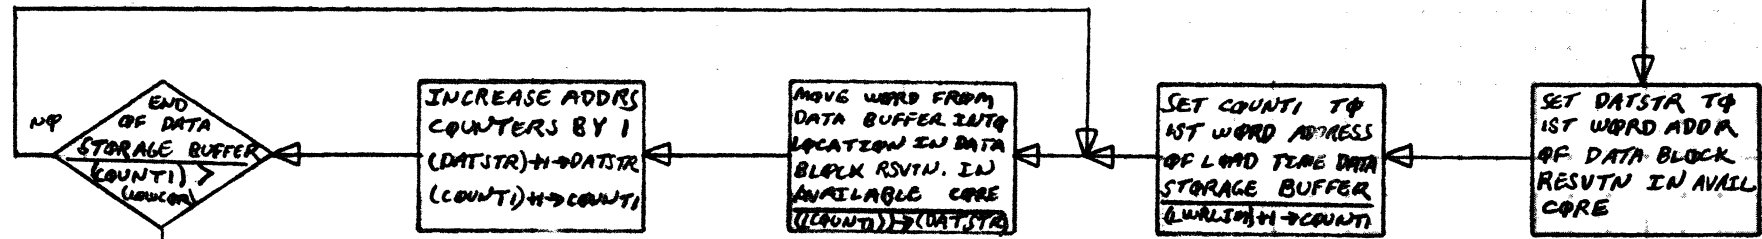 NO
END
OF DATA
STORAGE BUFFER
(COUNT1) >
(LOWCOR)
INCREASE ADDRS
COUNTERS BY 1
(DATSTR)+1→DATSTR
(COUNT1)+1→COUNT1
MOVE WORD FROM
DATA BUFFER INTO
LOCATION IN DATA
BLOCK RSVTN. IN
AVAILABLE CORE
((COUNT1))→(DATSTR)
SET COUNT1 TO
1ST WORD ADDRESS
OF LOAD TIME DATA
STORAGE BUFFER
(LWRLIM)+1→COUNT1
SET DATSTR TO
1ST WORD ADDR
OF DATA BLOCK
RESVTN IN AVAIL
CORE